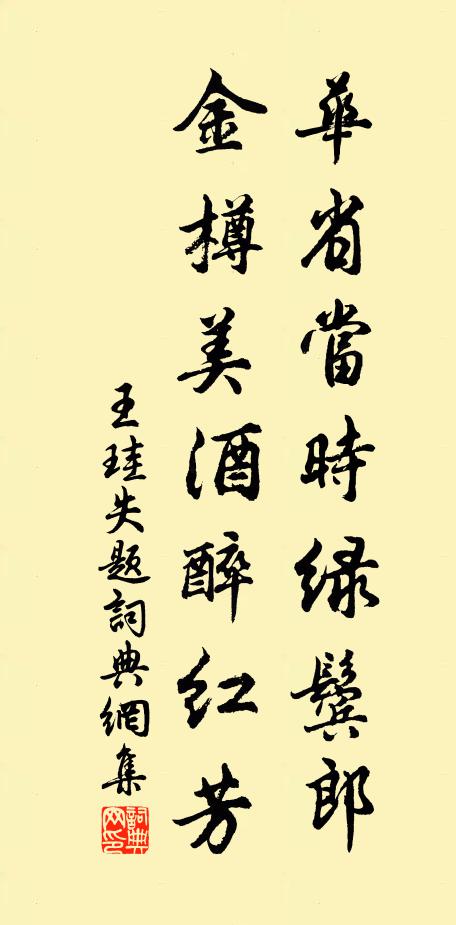 華省當時緑鬢郎
金樽美酒醉紅芳
王珪失题詞典網集
詞典網印